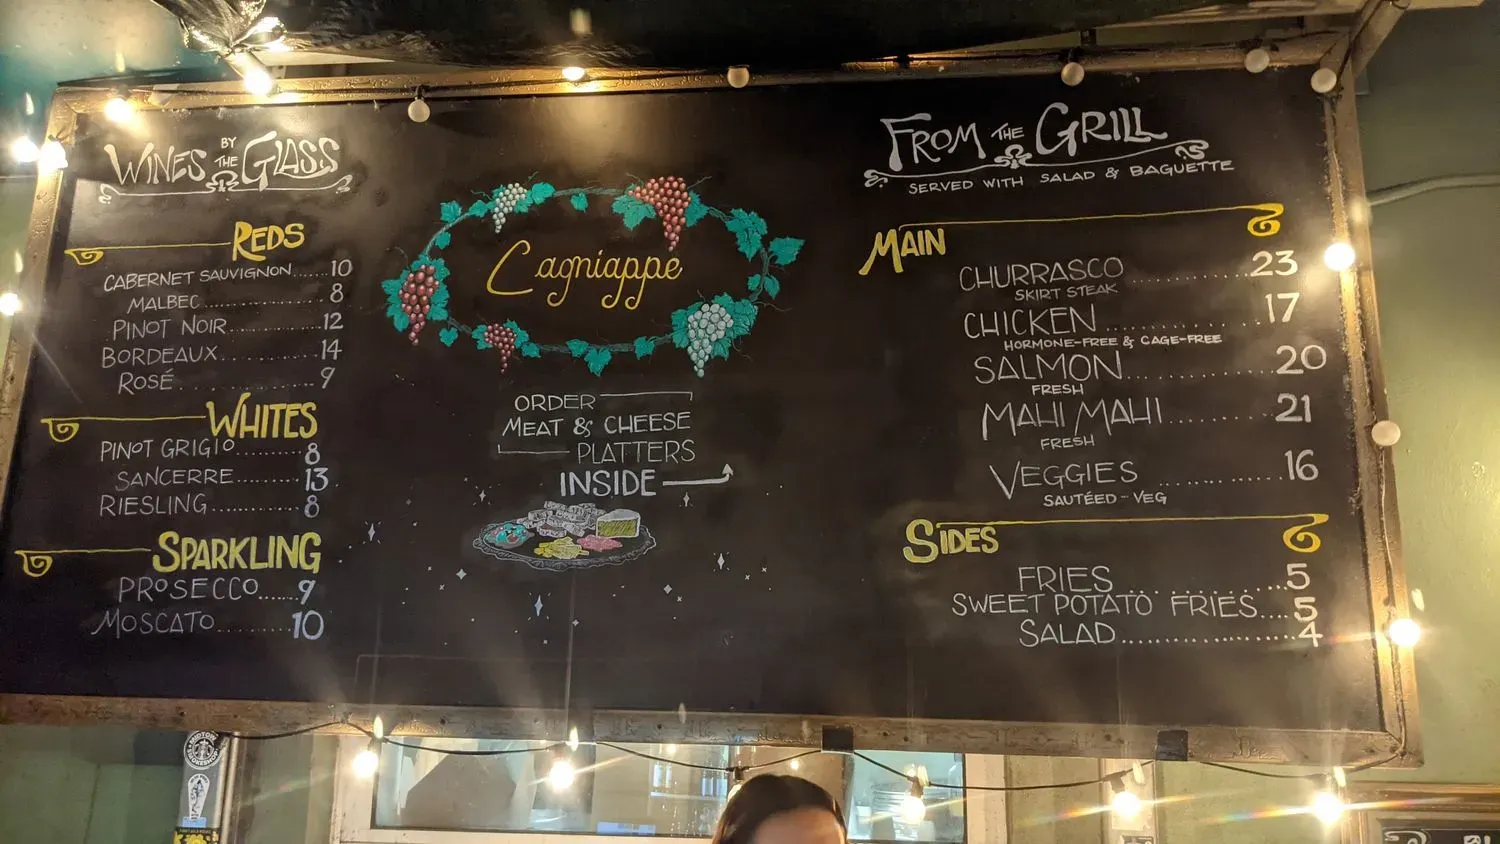 WINES BY THE GLASS
REDS
CABERNET SAUVIGNON......10
MALBEC..................8
PINOT NOIR..............12
BORDEAUX................14
ROSÉ....................9
WHITES
PINOT GRIGIO............8
SANCERRE.........13
RIESLING............8
SPARKLING
PROSECCO......9
MOSCATO..........10
Lagniappe
ORDER
MEAT & CHEESE
PLATTERS
INSIDE
FROM THE GRILL
SERVED WITH SALAD & BAGUETTE
MAIN
CHURRASCO...............23
SKIRT STEAK
CHICKEN...............17
HORMONE-FREE & CAGE-FREE
SALMON..................20
FRESH
MAHI MAHI..............21
FRESH
VEGGIES................16
SAUTÉED-VEG
SIDES
FRIES..................5
SWEET POTATO FRIES....5
SALAD..................4